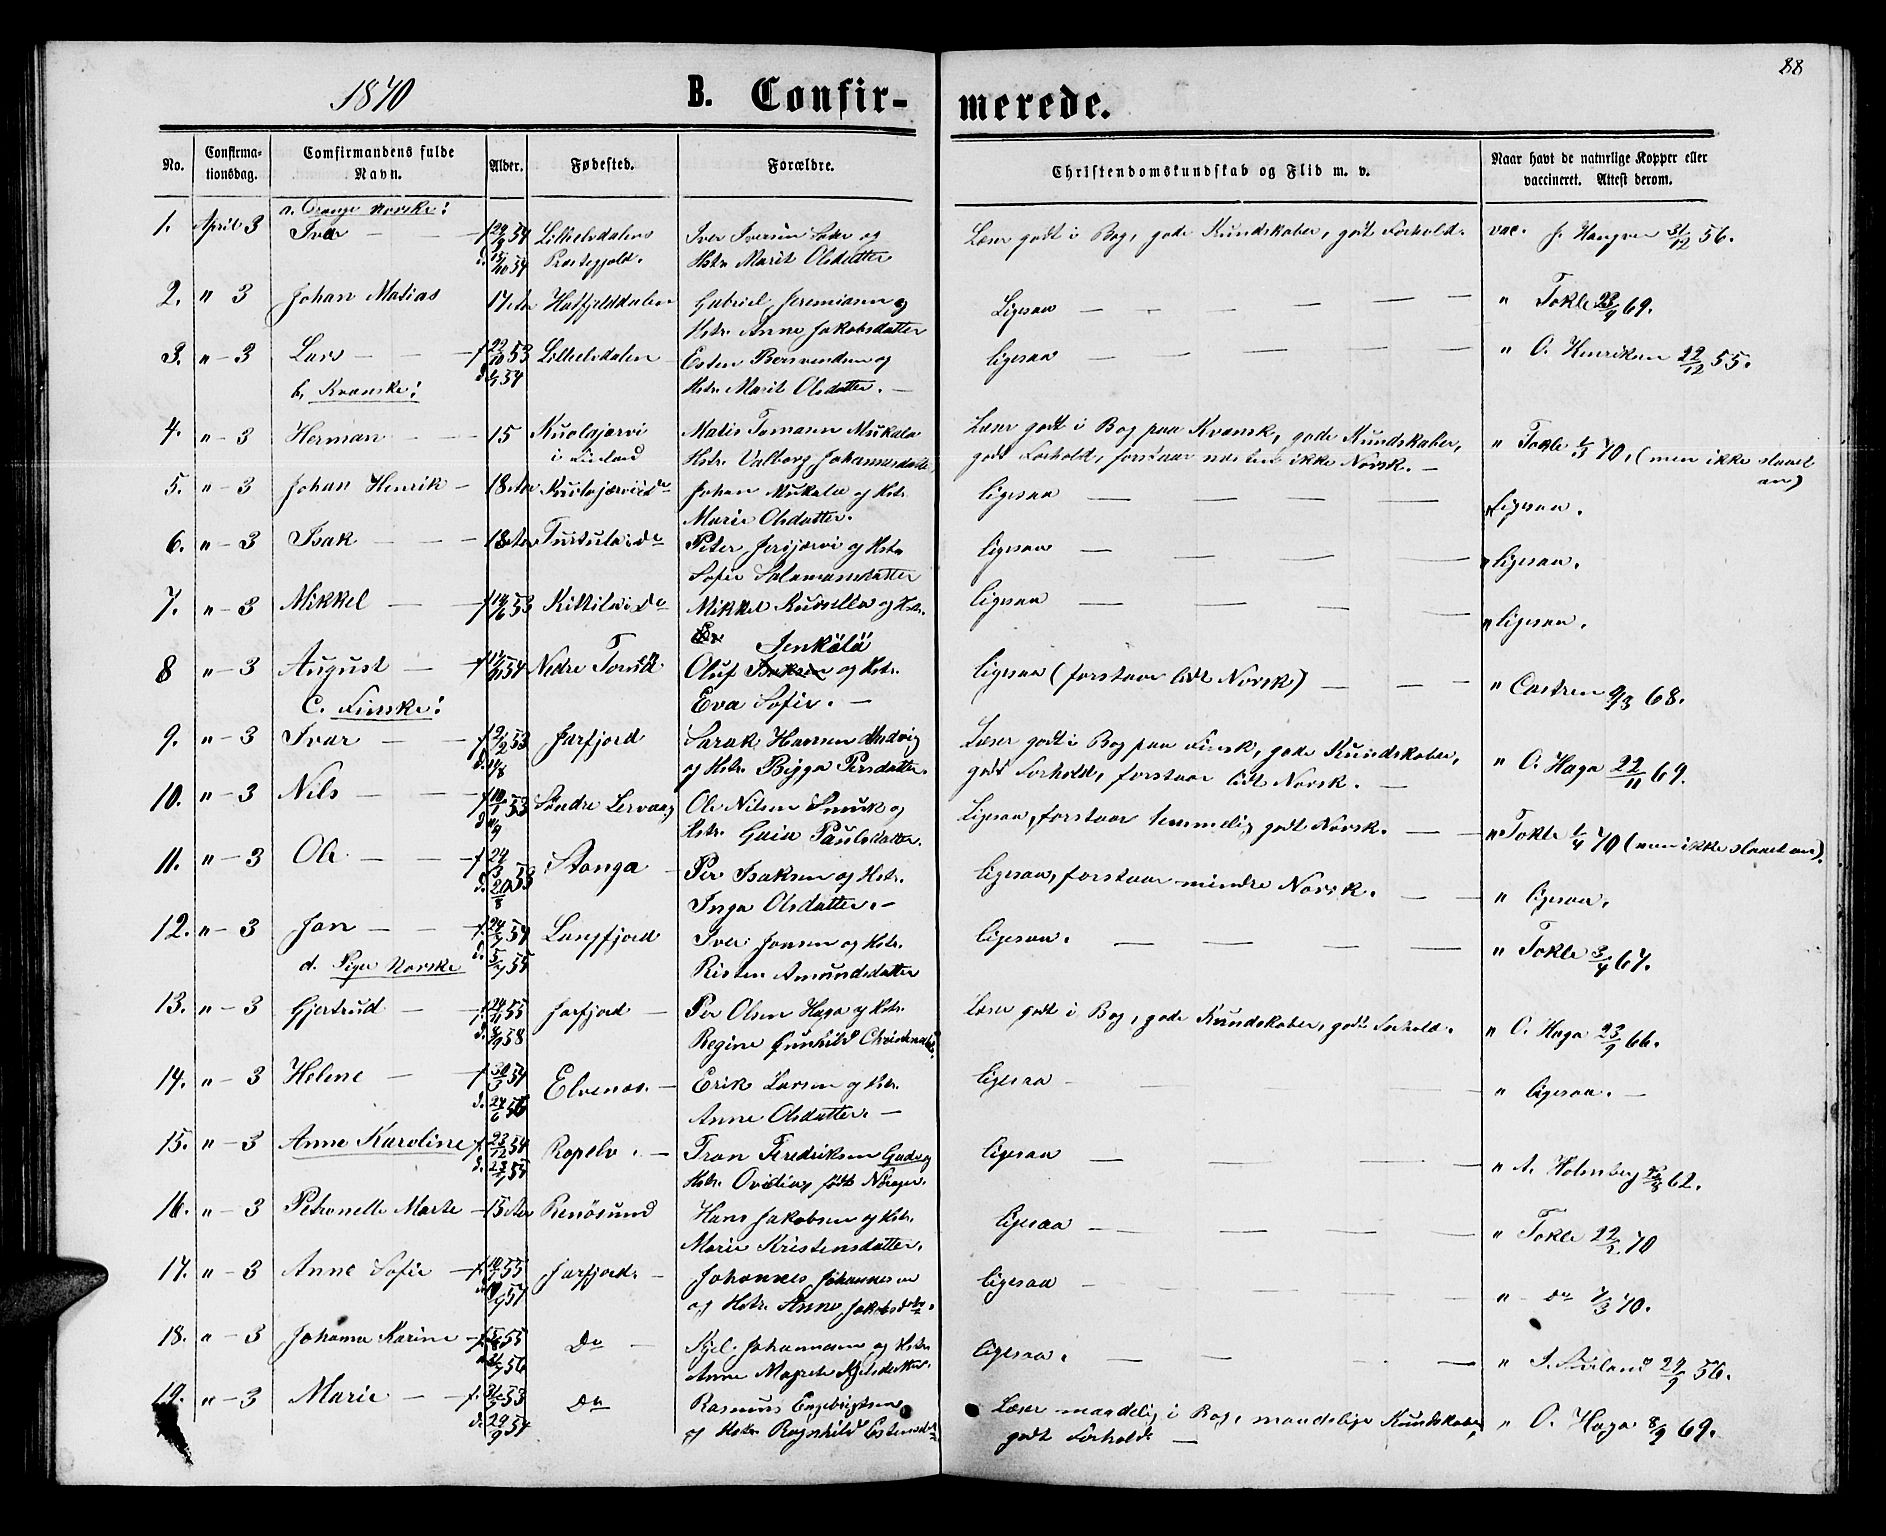 1870
B. Confir-
merede.
88
No.
Confirma-
tionsdag.
Comfirmandens fulde
Navn.
Alder.
Fødested.
Forældre.
Christendomskundskab og Flid m. v.
Naar havt de naturlige Kopper eller
vaccineret. Attest derom.
a. Drenge Norske:
1. April 3 Ivar
Præstegjeld.
Iver Iversen og
Hstr. Marit Olsdatter
Læser godt i Bog, gode Kundskaber, godt Forhold.
vac. 31/12 56.
2. " 3 Johan Matias 17 Hatfjelddalen
Gabriel Jeremiasen og
Hstr. Anne Jakobsdatter
Ligesaa
" Tokle 23/9 69.
3. " 3 Lars f. 22/10 53
Esten og
Hstr. Marit Olsdatter.
ligesaa
" O. Henriksen 22/12 55.
b, Kvænske:
4. " 3 Herman 15 Kuolajærvi
i Finland
Matis Tomasen Mukala
Hstr. Valborg Johannesdatter
Læser godt i Bog paa Kvænsk, gode Kundskaber,
godt Forhold, forstaar næsten ikke Norsk.
" Tokle 1/3 70, (men ikke slaaet
an)
5. " 3 Johan Henrik 18 Kuolajærvi do
Johan Mukala og Hstr.
Marie Olsdatter.
ligesaa
" Ligesaa.
6. " 3 Isak 18 Turtula i do
Peter Jerijærvi og Hstr
Sofie Salamonsdatter
ligesaa
" ligesaa.
7. " 3 Mikkel Kittila i do
Mikkel og Hstr.
ligesaa
" ligesaa.
8 " 3 August Nedre Torneå
Jenkölä
Oluf Isaksen og Hstr.
Eva Sofie.
ligesaa (forstaar lidt Norsk)
" Castren 9/3 68.
C. Finske:
9. " 3 Ivar f. 2/2 53 Jarfjord
Sarak Hansen
og Hstr. Bigga Persdatter.
Læser godt i Bog paa Finsk, gode Kundskaber,
godt Forhold, forstaar lidt Norsk.
" O. Haga 22/11 69.
10. " 3 Nils Søndre
Ole Nilsen Smuk og
Hstr. Gaia Paulsdatter.
Ligesaa, forstaar temmelig godt Norsk.
" Tokle 1/4 70 (men ikke slaaet an).
11. " 3 Ole Stonga
d. 20/8 53
Per Isaksen og Hstr.
Inga Olsdatter.
ligesaa, forstaar mindre Norsk.
" ligesaa.
12. " 3 Jon Langfjord
Iver Jonsen og Hstr.
Risten Amundsdatter
ligesaa.
" Tokle 3/4 67.
d. Piger Norske
13. " 3 Gjertrud f. 24/11 55 Jarfjord
Per Olsen Haga og Hstr.
Regine Gunhild
Læser godt i Bog, gode Kundskaber, godt Forhold.
" O. Haga 23/9 66.
14. " 3 Helene f. 30/3 54 Elvenæs.
Erik Larsen og Hstr.
Anne Olsdatter.
ligesaa
" ligesaa.
15. " 3 Anne Karoline f. 23/12 54 Ropelv.
Fredriksen
Hstr. født
ligesaa
" A. Holmberg 62.
16. " 3 Petronelle Marte 15 Renøsund
Hans Jakobsen og Hstr.
Marie Kristensdatter.
ligesaa
" Tokle 22/2 70
17. " 3 Anne Sofie Jarfjord.
Johannes Johannesen
og Hstr. Anne Jakobsdtr.
ligesaa
" do 7/3 70.
18. " 3 Johanna Karine do
Kjel Johannesen og Hstr.
Anne Magrete Kjelsdatter.
ligesaa.
" 29/9 56.
19. " 3 Marie do
d. 29/9 54
Rasmus Engebrigtsen
og Hstr. Ragnhild Estensdtr
Læser maadelig i Bog, maadelige Kundskaber,
godt Forhold.
" O. Haga 8/9 69.